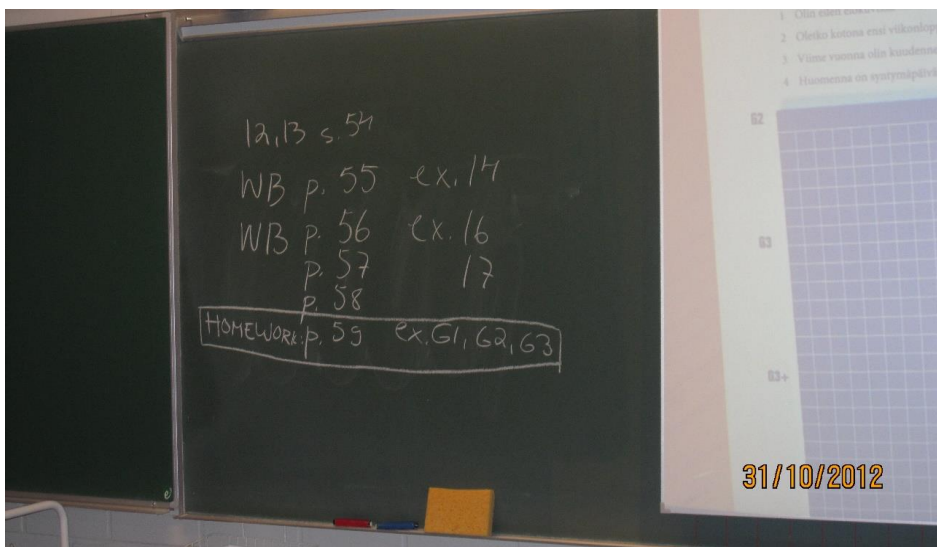 12,13 s.54
WB p. 55 ex.14
WB p. 56 ex.16
p. 57 17
p. 58
HOMEWORK: p. 59 ex.G1, G2, G3
1 Olin eilen
2 Oletko kotona ensi viikonlop
3 Viime vuonna olin kuudenne
4 Huomenna on syntymäpäivä
G2
G3
G3+
31/10/2012